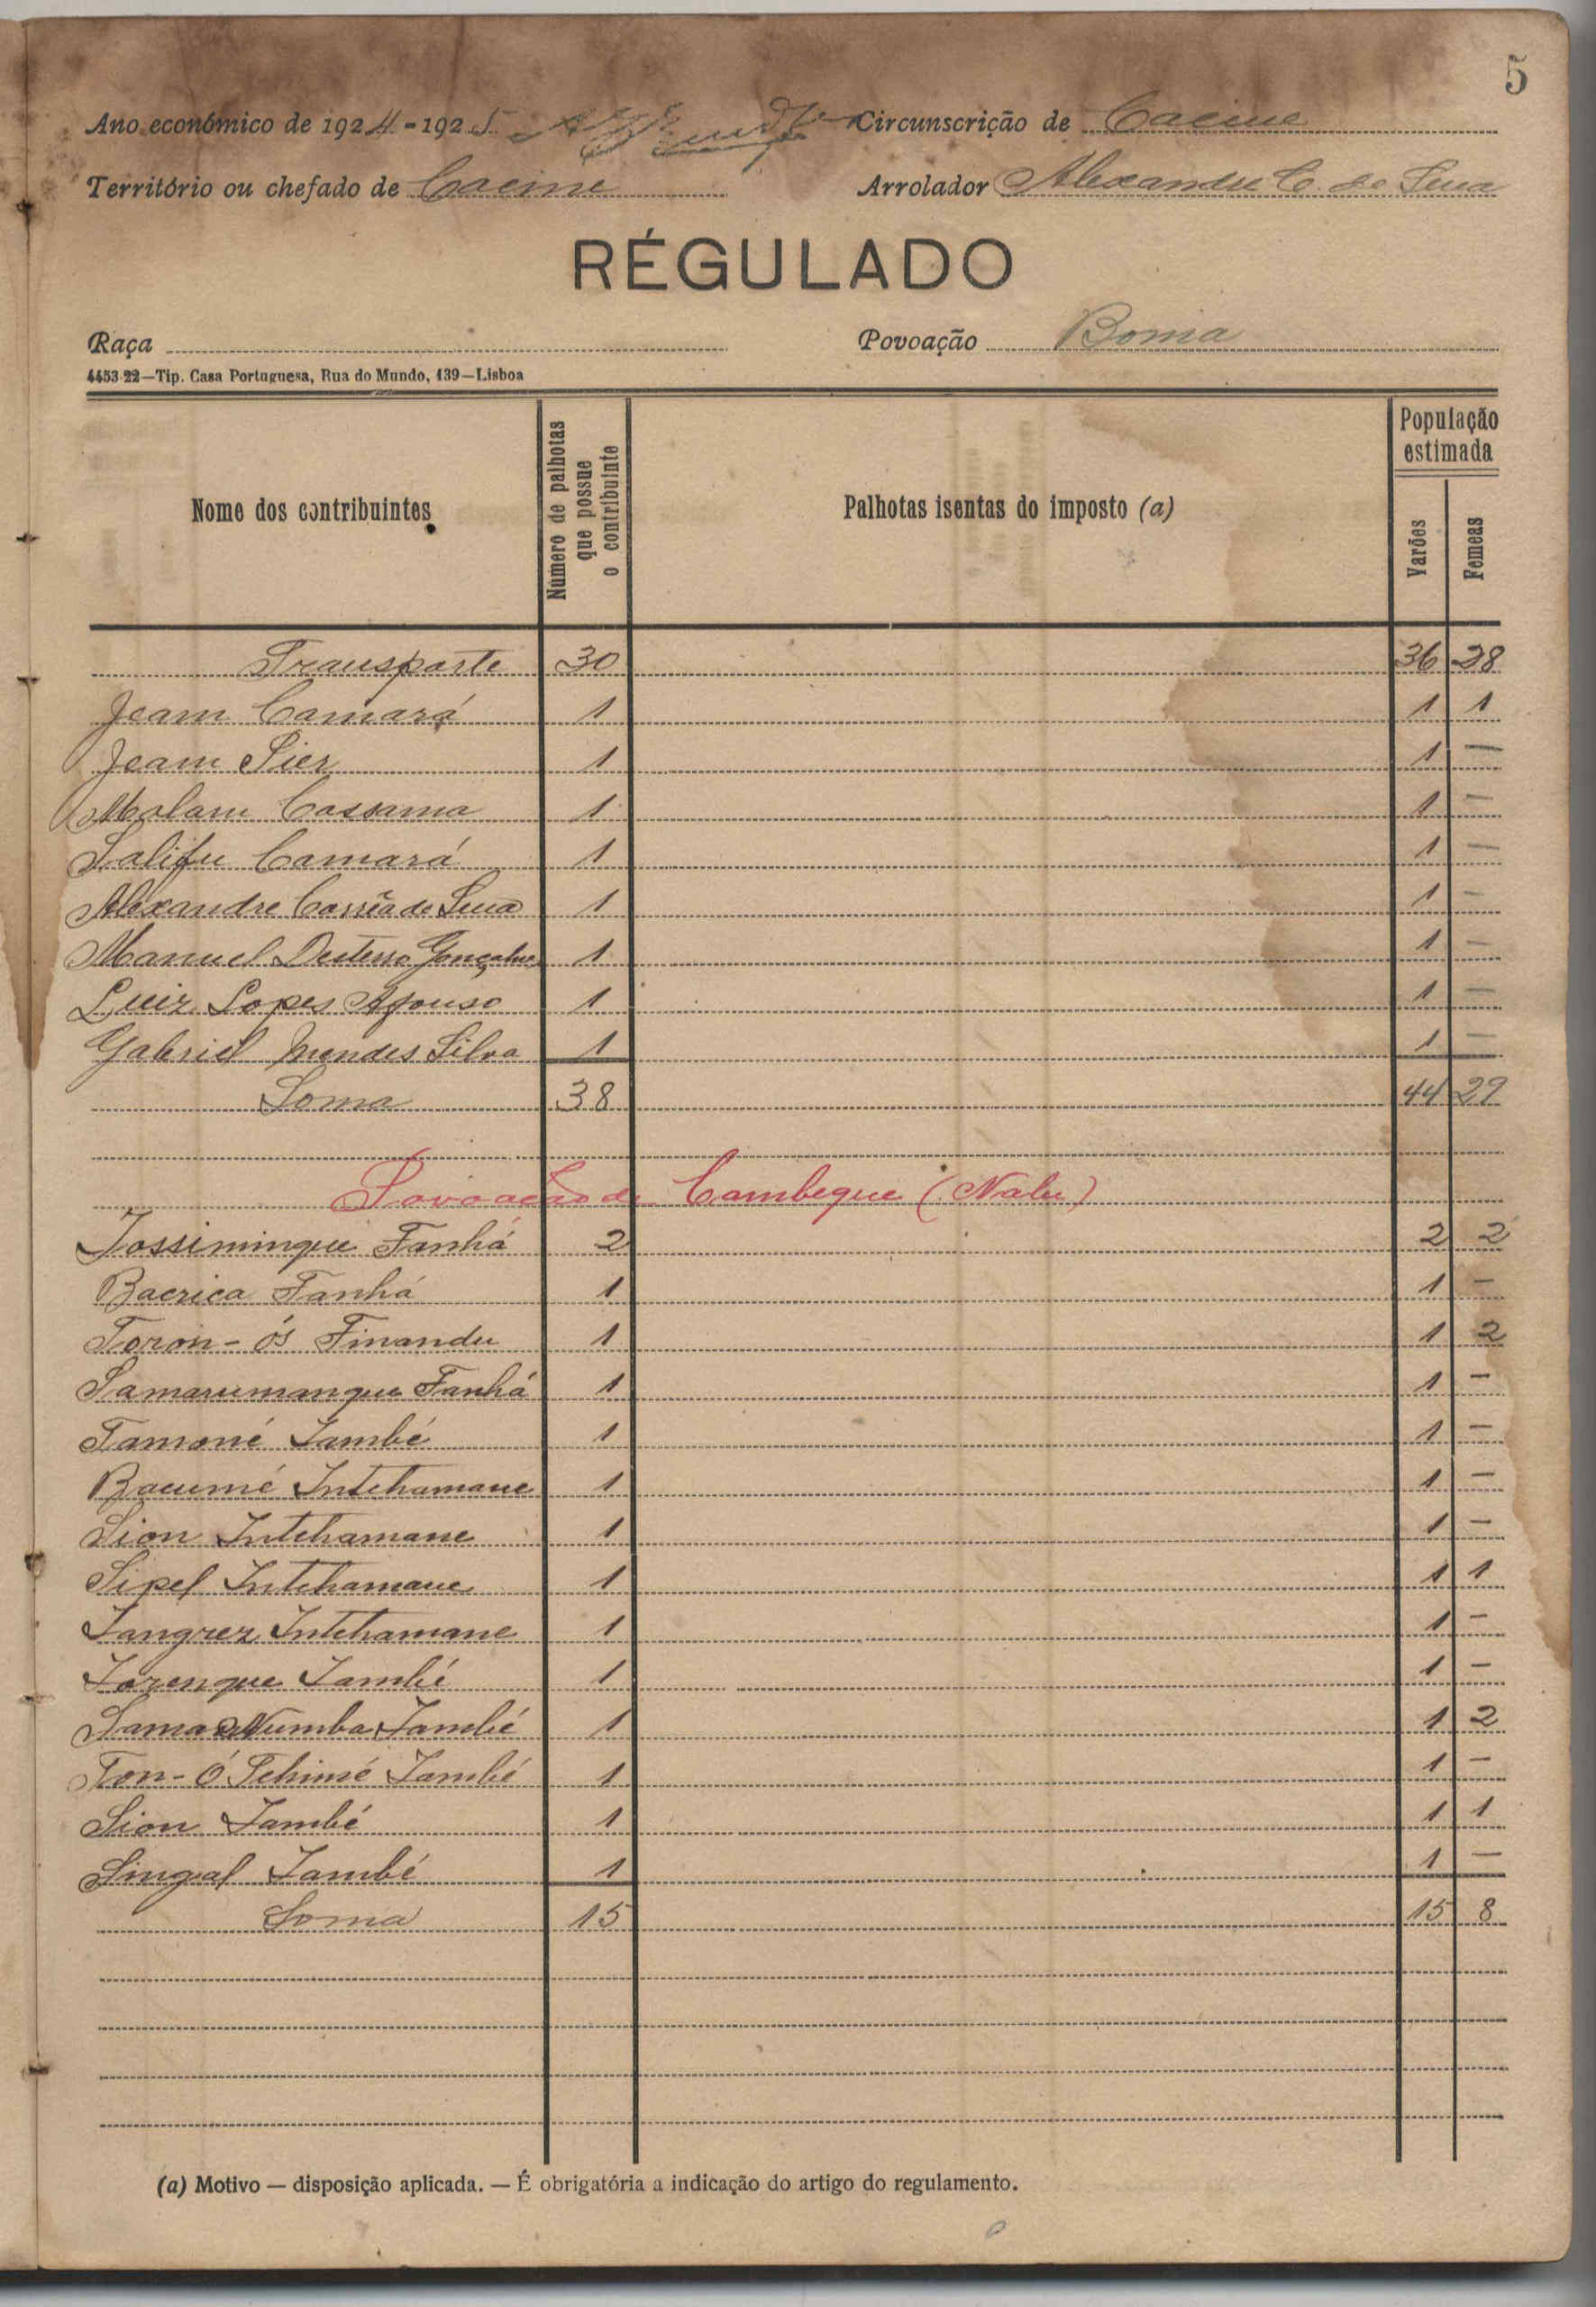 5
Ano económico de 1924-1925 Circunscrição de Cacine
Território ou chefado de Cacine Arrolador Alexandre C. de Sena
RÉGULADO
Raça Povoação Bomia
4453-22—Tip. Casa Portuguesa, Rua do Mundo, 139—Lisboa
Nome dos contribuintes Número de palhotas que possue o contribuinte Palhotas isentas do imposto (a) População estimada Varões Femeas
Transporte 30 36 28
Jeam Camará 1 1 1
Jeam Sier 1 1 —
Malam Cassama 1 1 —
Salifu Camará 1 1 —
Alexandre Corrêa de Sena 1 1 —
Manuel Desterro Gonçalves 1 1 —
Luiz Lopes Afonso 1 1 —
Gabriel Mendes Silva 1 1 —
Soma 38 44 29
Povoação de Cambeque (Nalu)
Jossiminque Fanhá 2 2 2
Bacrica Fanhá 1 1 —
Toron-ós Finandu 1 1 2
Samarumanque Fanhá 1 1 —
Tamoné També 1 1 —
Bacumé Intchamane 1 1 —
Sion Intchamane 1 1 —
Sipel Intchamane 1 1 1
Tangrez Intchamane 1 1 —
Torenque També 1 1 —
Sama Numba També 1 1 2
Ton-Ó Tchimé També 1 1 —
Sion També 1 1 1
Singal També 1 1 —
Soma 15 15 8
(a) Motivo — disposição aplicada. — É obrigatória a indicação do artigo do regulamento.